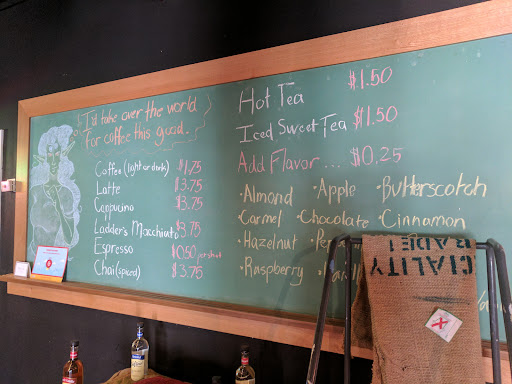 I'd take over the world
for coffee this good.
Coffee (light or dark) $1.75
Latte $3.75
Cappucino $3.75
Ladder's Macchiato $3.75
Espresso $0.50 per shot
Chai (spiced) $3.75
Hot Tea $1.50
Iced Sweet Tea $1.50
Add Flavor... $0.25
·Almond ·Apple ·Butterscotch
·Carmel ·Chocolate ·Cinnamon
·Hazelnut
·Raspberry
CIALITY
GRADE